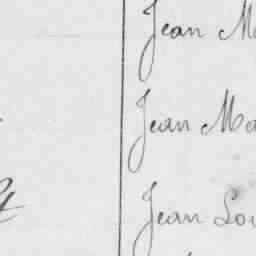 Jean Ma
Jean Ma
Jean Lou